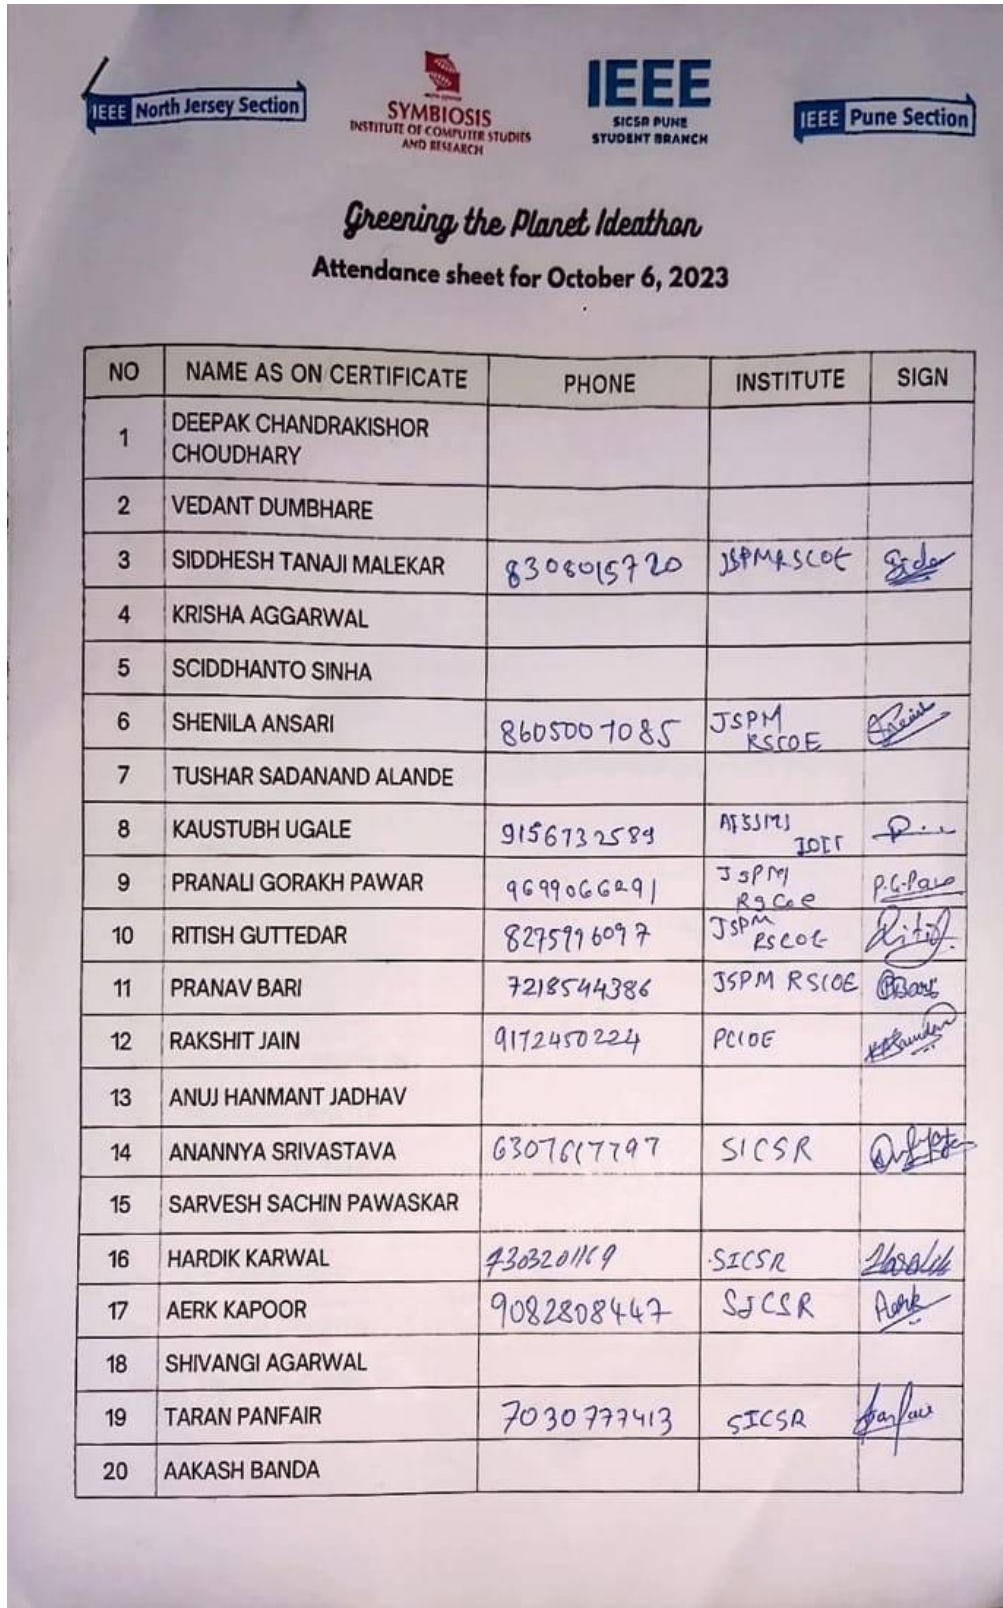 IEEE North Jersey Section
SYMBIOSIS
INSTITUTE OF COMPUTER STUDIES
AND RESEARCH
IEEE
SICSR PUNE
STUDENT BRANCH
IEEE Pune Section
Greening the Planet Ideathon
Attendance sheet for October 6, 2023
NO NAME AS ON CERTIFICATE PHONE INSTITUTE SIGN
1 DEEPAK CHANDRAKISHOR
CHOUDHARY
2 VEDANT DUMBHARE
3 SIDDHESH TANAJI MALEKAR 8308015720 JSPMRSCOE
4 KRISHA AGGARWAL
5 SCIDDHANTO SINHA
6 SHENILA ANSARI 8605007085 JSPM
RSCOE
7 TUSHAR SADANAND ALANDE
8 KAUSTUBH UGALE 9156732589
IOIT
9 PRANALI GORAKH PAWAR 9699066291 JSPM
RSCOE P.G.Pawar
10 RITISH GUTTEDAR 8275996097 JSPM
RSCOE Ritish
11 PRANAV BARI 7218544386 JSPM RSCOE PBari
12 RAKSHIT JAIN 9172450224 PCCOE
13 ANUJ HANMANT JADHAV
14 ANANNYA SRIVASTAVA 6307617797 SICSR
15 SARVESH SACHIN PAWASKAR
16 HARDIK KARWAL 7303201169 SICSR Hardik
17 AERK KAPOOR 9082808447 SICSR Aerk
18 SHIVANGI AGARWAL
19 TARAN PANFAIR 7030777413 SICSR
20 AAKASH BANDA